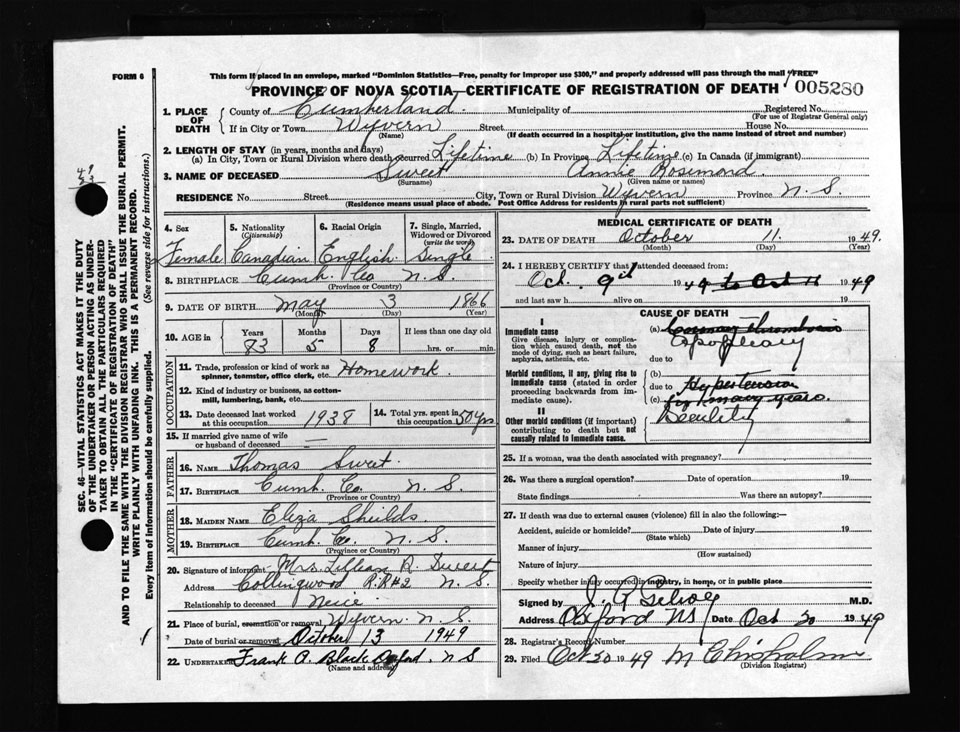 FORM 6
This form if placed in an envelope, marked "Dominion Statistics—Free, penalty for improper use $300," and properly addressed will pass through the mail "FREE"
PROVINCE OF NOVA SCOTIA—CERTIFICATE OF REGISTRATION OF DEATH
005280
1. PLACE OF DEATH
County of Cumberland Municipality of Registered No.
(For use of Registrar General only)
If in City or Town Wyvern Street House No.
(Name) (If death occurred in a hospital or institution, give the name instead of street and number)
2. LENGTH OF STAY (in years, months and days)
(a) In City, Town or Rural Division where death occurred Lifetime (b) In Province Lifetime (c) In Canada (if immigrant)
3. NAME OF DECEASED Sweet Annie Rosimond
(Surname) (Given name or names)
RESIDENCE No. Street City, Town or Rural Division Wyvern Province N. S.
(Residence means usual place of abode. Post Office Address for residents in rural parts not sufficient)
4. Sex
Female
5. Nationality
(Citizenship)
Canadian
6. Racial Origin
English
7. Single, Married, Widowed or Divorced
(write the word)
Single
8. BIRTHPLACE Cumb. Co N. S.
(Province or Country)
9. DATE OF BIRTH May 3 1866
(Month) (Day) (Year)
10. AGE in
Years Months Days If less than one day old
83 5 8 hrs. or min.
OCCUPATION
11. Trade, profession or kind of work as spinner, teamster, office clerk, etc. Homework.
12. Kind of industry or business, as cotton-mill, lumbering, bank, etc.
13. Date deceased last worked at this occupation 1938
14. Total yrs. spent in this occupation 50 yrs
15. If married give name of wife or husband of deceased —
FATHER
16. NAME Thomas Sweet.
17. BIRTHPLACE Cumb. Co. N. S.
(Province or Country)
MOTHER
18. MAIDEN NAME Eliza Shields
19. BIRTHPLACE Cumb. Co. N. S.
(Province or Country)
20. Signature of informant Mrs. Lillian R. Sweet
Address Collingwood R.R#2 N. S.
Relationship to deceased Neice
21. Place of burial, cremation or removal Wyvern N. S.
Date of burial or removal October 13 1949
22. UNDERTAKER Frank A. Black Oxford. N S
(Name and address)
MEDICAL CERTIFICATE OF DEATH
23. DATE OF DEATH October 11. 1949.
(Month) (Day)
24. I HEREBY CERTIFY that I attended deceased from:
Oct. 9th 1949 to Oct 11 1949
and last saw h alive on 19
CAUSE OF DEATH
I
Immediate cause
Give disease, injury or complication which caused death, not the mode of dying, such as heart failure, asphyxia, asthenia, etc.
(a) Coronary Thrombosis
due to
Morbid conditions, if any, giving rise to immediate cause (stated in order proceeding backwards from immediate cause).
(b)
due to Hypertension
(c) for many years.
II
Other morbid conditions (if important) contributing to death but not causally related to immediate cause.
25. If a woman, was the death associated with pregnancy?
26. Was there a surgical operation? Date of operation 19
State findings Was there an autopsy?
27. If death was due to external causes (violence) fill in also the following:—
Accident, suicide or homicide? Date of injury 19
(State which)
Manner of injury
(How sustained)
Nature of injury
Specify whether injury occurred in industry, in home, or in public place
Signed by M.D.
Address Oxford NS Date Oct 20 1949
28. Registrar's Record Number
29. Filed Oct 20 1949 M Chisholm
(Division Registrar)
SEC. 46—VITAL STATISTICS ACT MAKES IT THE DUTY
OF THE UNDERTAKER OR PERSON ACTING AS UNDER-
TAKER TO OBTAIN ALL THE PARTICULARS REQUIRED
IN THE "CERTIFICATE OF REGISTRATION OF DEATH"
AND TO FILE THE SAME WITH THE DIVISION REGISTRAR WHO SHALL ISSUE THE BURIAL PERMIT.
WRITE PLAINLY WITH UNFADING INK. THIS IS A PERMANENT RECORD.
Every item of information should be carefully supplied. (See reverse side for instructions.)